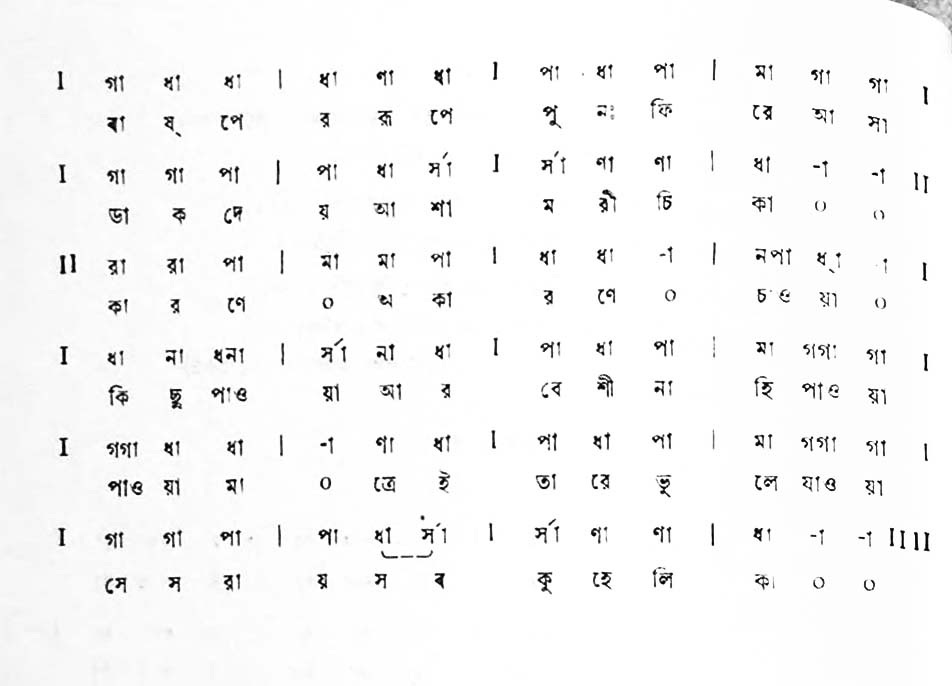 I গা ধা ধা | ধা ণা ধা I পা ধা পা | মা গা গা I
বা ষ্ পে র রূ পে পু নঃ ফি রে আ সা
I গা গা পা | পা ধা র্সা I র্সা ণা ণা | ধা -া -া II
ডা ক দে য় আ শা ম রী চি কা ০ ০
II রা রা পা | মা মা পা I ধা ধা -া | নপা ধ্া -া I
কা র ণে ০ অ কা র ণে ০ চাও য়া ০
I ধা না ধনা | র্সা না ধা I পা ধা পা | মা গগা গা I
কি ছু পাও য়া আ র বে শী না হি পাও য়া
I গগা ধা ধা | -া ণা ধা I পা ধা পা | মা গগা গা I
পাও য়া মা ০ ত্রে ই তা রে ভু লে যাও য়া
I গা গা পা | পা ধা র্সা I র্সা ণা ণা | ধা -া -া IIII
সে স রা য় স ব কু হে লি কা ০ ০